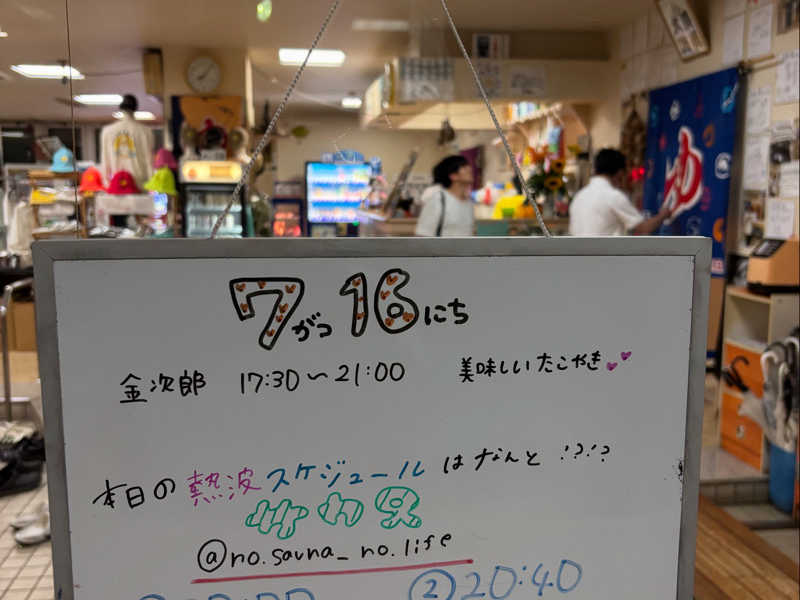 7がつ16にち
金次郎 17:30〜21:00 美味しいたこやき
本日の熱波スケジュールはなんと!?!?
@no.sauna_no.life
②20:40
ゆ